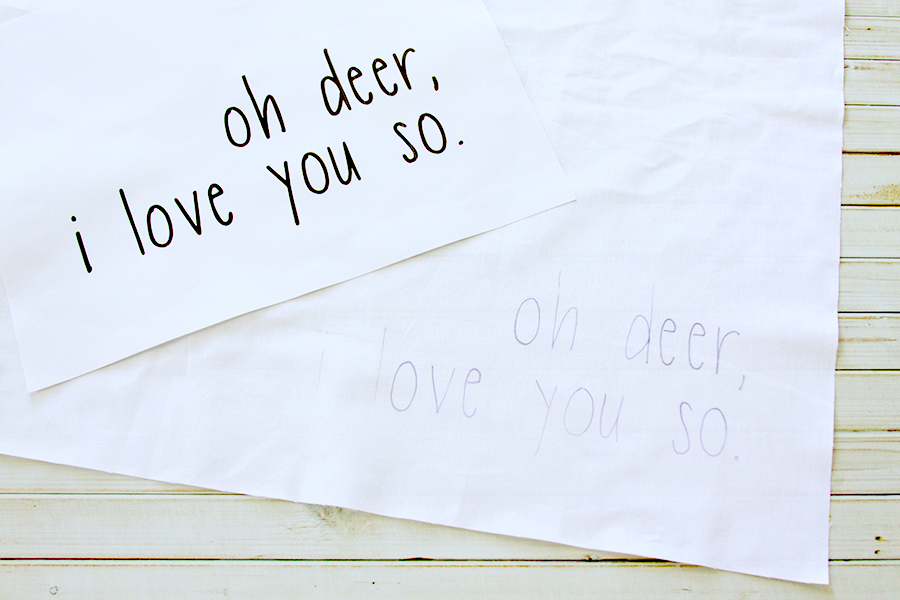 oh deer,
i love you so.
oh deer,
i love you so.